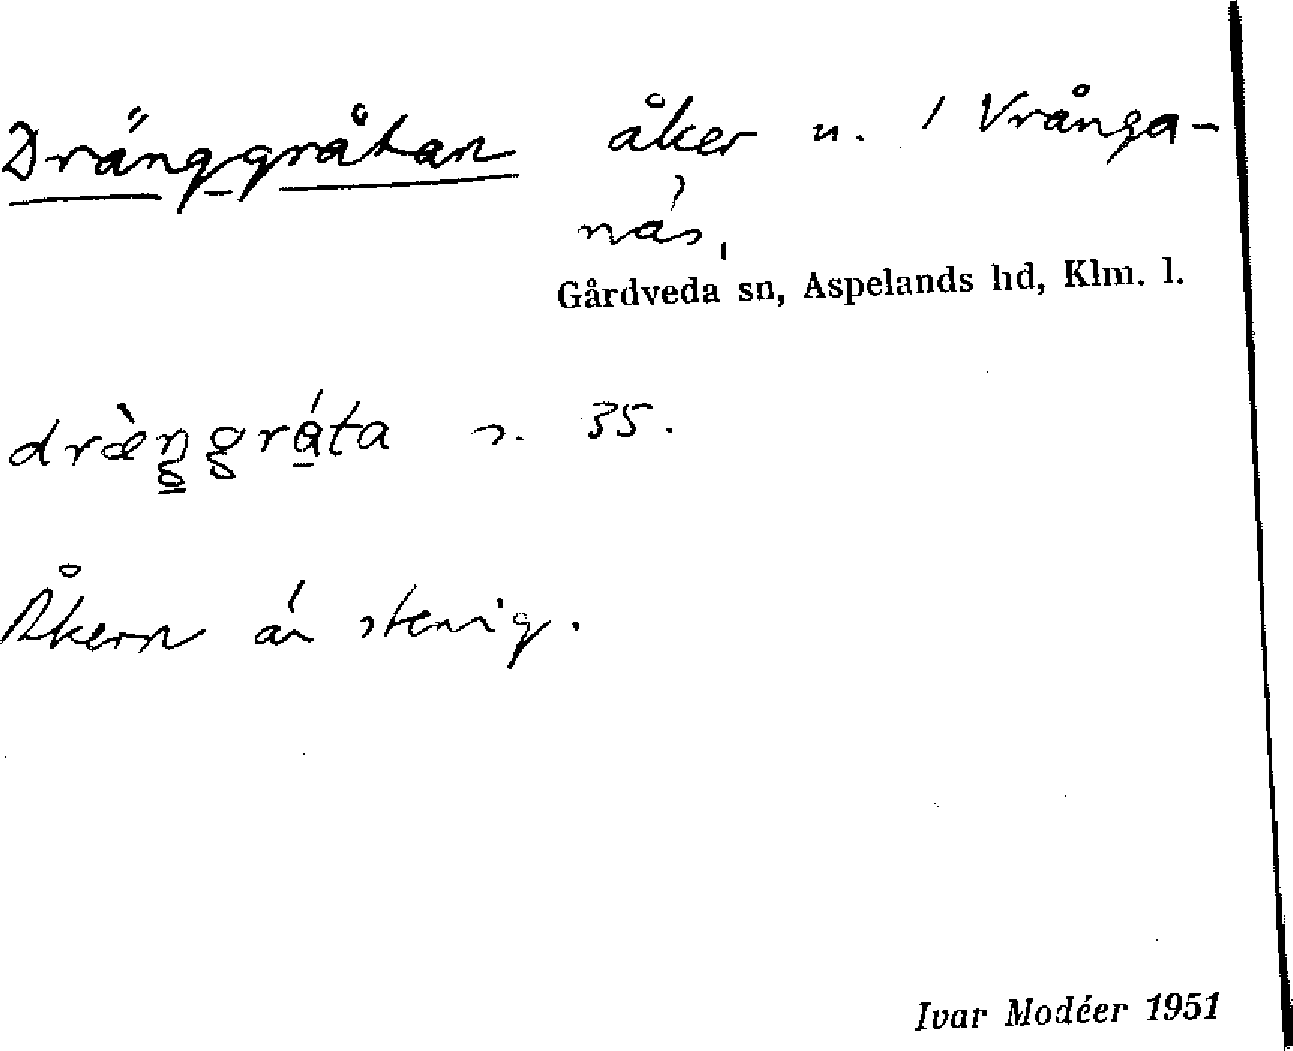 Dränggråtan åker u. / Vrånga-
näs,
Gårdveda sn, Aspelands hd, Klm. l.
dræ̀ŋgrá̱ta s. 35.
Åkern är stenig.
Ivar Modéer 1951